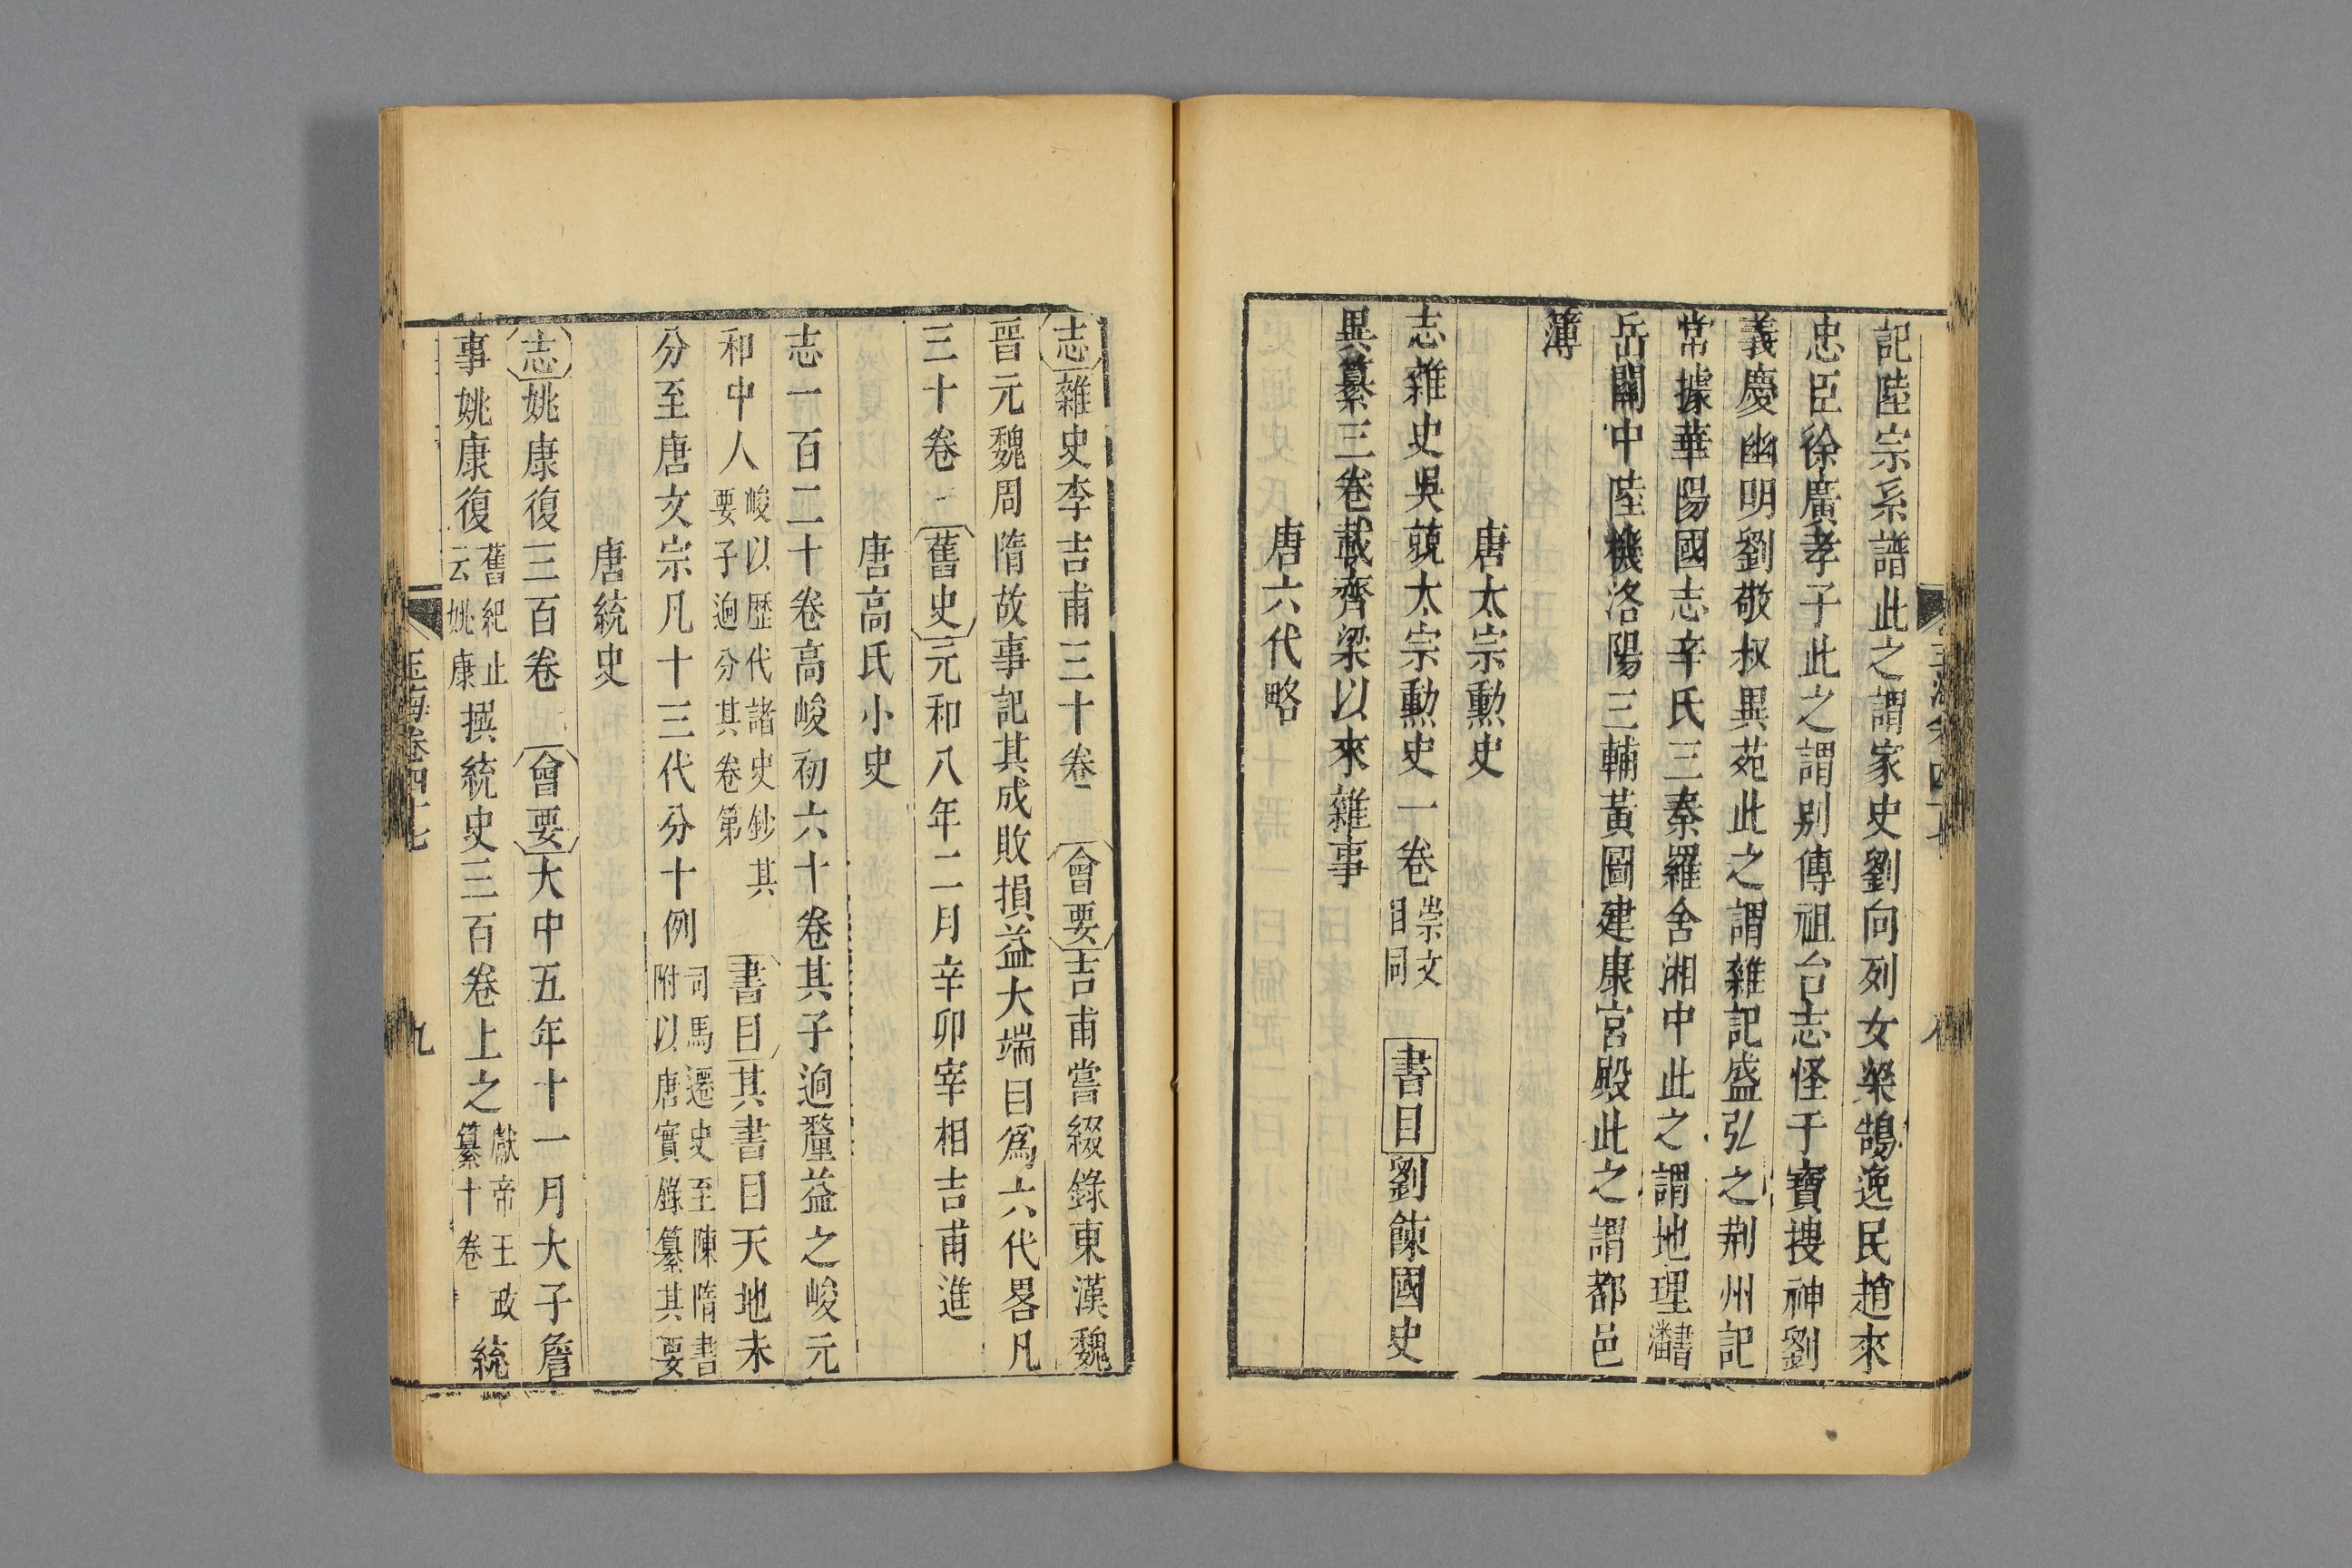 記陸宗系譜此之謂家史劉向列女梁鵠逸民趙來
忠臣徐廣孝子此之謂别傳祖台志怪于寶搜神劉
義慶幽明劉敬叔異苑此之謂雜記盛弘之荆州記
常據華陽國志辛氏三秦羅舍湘中此之謂地理書潘
岳關中陸機洛陽三輔黃圖建康宮殿此之謂都邑
簿
唐太宗勲史
志雜史吳兢太宗勲史一卷崇文目同 書目劉餗國史
異纂三卷載齊梁以來雜事
唐六代略
志雜史李吉甫三十卷 會要吉甫嘗綴錄東漢魏
晉元魏周隋故事記其成敗損益大端目爲六代畧凡
三十卷 舊史元和八年二月辛卯宰相吉甫進
唐高氏小史
志一百二十卷高峻初六十卷其子逈釐益之峻元
和中人峻以歷代諸史鈔其要子逈分其卷第 書目其書目天地未
分至唐文宗凡十三代分十例司馬遷史至陳隋書附以唐實錄纂其要
唐統史
志姚康復三百卷 會要大中五年十一月大子詹
事姚康復舊紀止云姚康撰統史三百卷上之獻帝王政纂十卷 統
玉海卷四十七
九